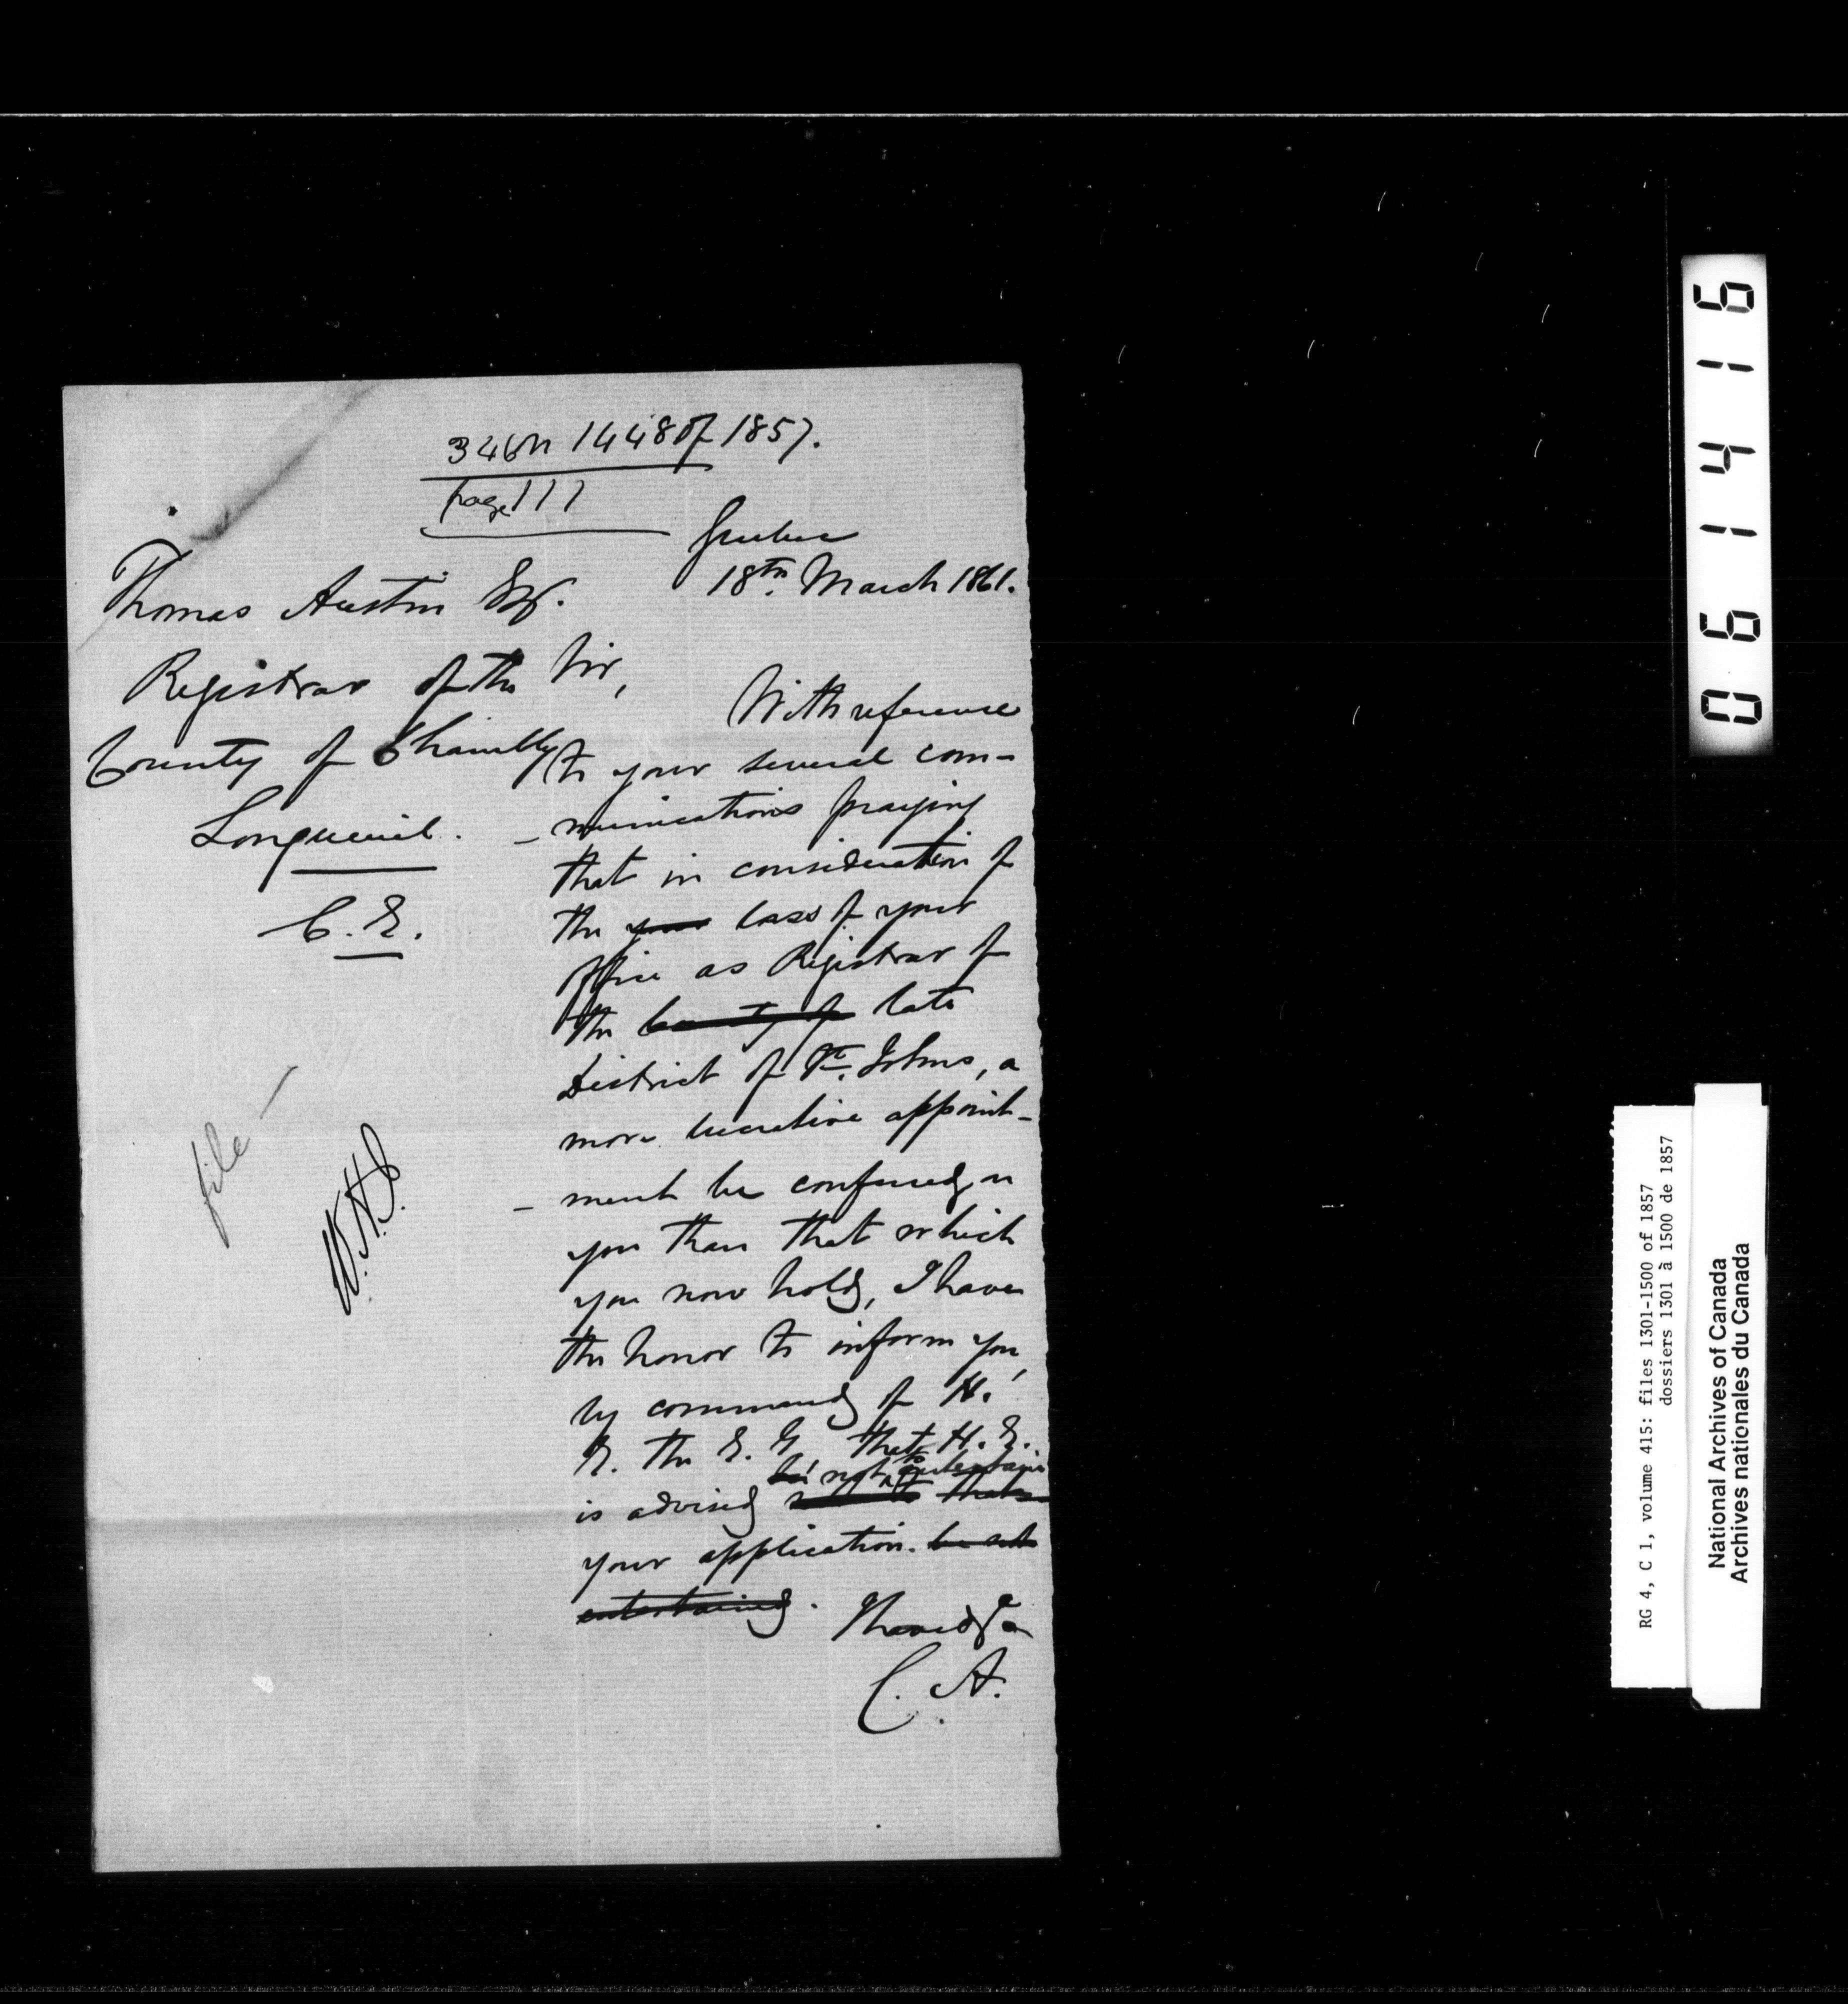 346 on 1448 of 1857.
page 111
Quebec
18th. March 1861.
Thomas Austin Esq.
Registrar of the
County of Chambly
Longueuil.
C. E.
Sir,
With reference
to your several com-
-munications praying
that in consideration of
the your loss of your
office as Registrar of
the County of late
District of St. Johns, a
more lucrative appoint-
-ment be conferred on
you than that which
you now hold, I have
the honor to inform you,
by command of H.
E. the G. G. that H. E.
not to entertain
is advised that
your application. be not
entertained.
I have &c
C. A.
file -
061416
RG 4, C 1, volume 415: files 1301-1500 of 1857
dossiers 1301 à 1500 de 1857
National Archives of Canada
Archives nationales du Canada